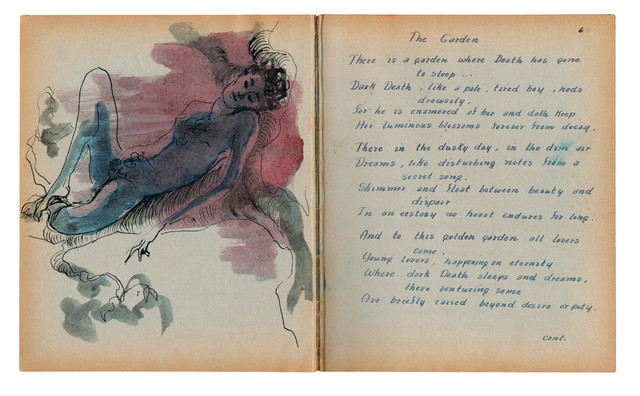 6
The Garden
There is a garden where Death has gone
to sleep ...
Dark Death, like a pale, tired boy, nods
drowsily,
For he is enamored of her and doth keep
Her luminous blossoms forever from decay.
There in the dusky day, in the dim air
Dreams, like disturbing notes from a
secret song.
Shimmer and float between beauty and
dispair
In an ecstasy no heart endures for long.
And to this golden garden all lovers
come.
Young lovers, happening on eternity
Where dark Death sleeps and dreams,
there venturing some
Are briefly raised beyond desire or pity.
cont.